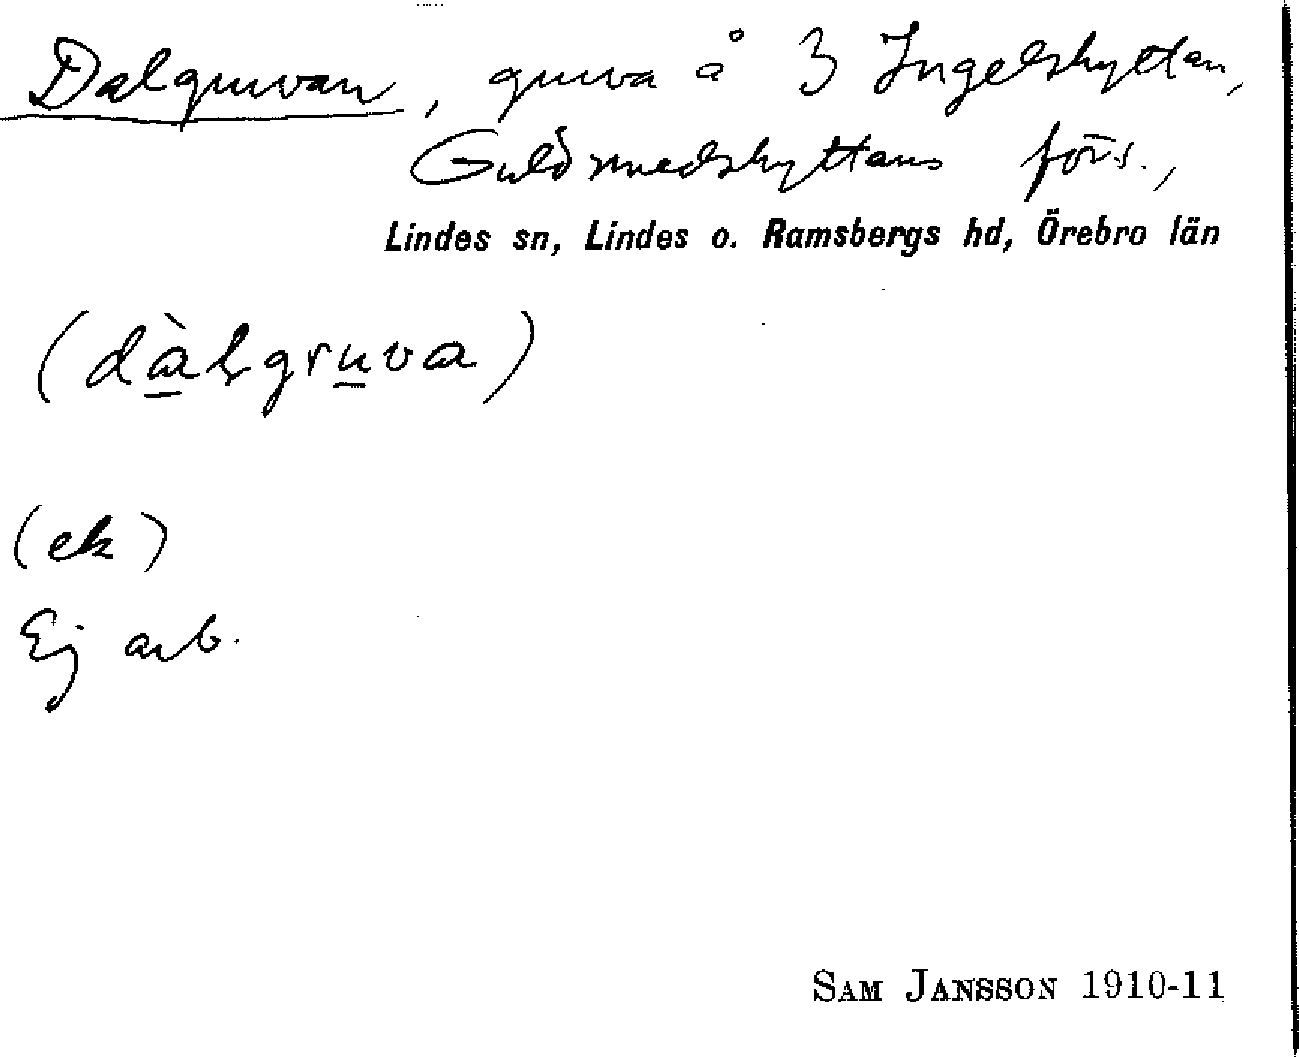 Dalgruvan, gruva å 3 Ingelshyttan,
Guldsmedshyttans förs.,
Lindes sn, Lindes o. Ramsbergs hd, Örebro län
(dàlgruva)
(ek)
Ej arb.
SAM JANSSON 1910-11